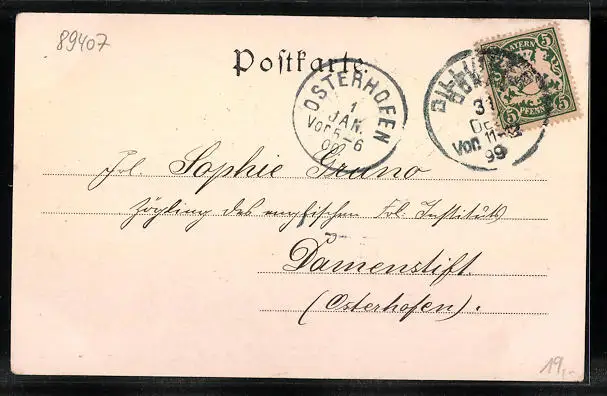 89407
Postkarte.
BAYERN
5 5
5 5
PFENNIG
OSTERHOFEN
1
JAN.
Vor 5-6
00
31
Dez
Von 11-12
99
Frl. Sophie Gruno
Zögling des englischen Frl. Instituts
Damenstift.
(Osterhofen).
19,-